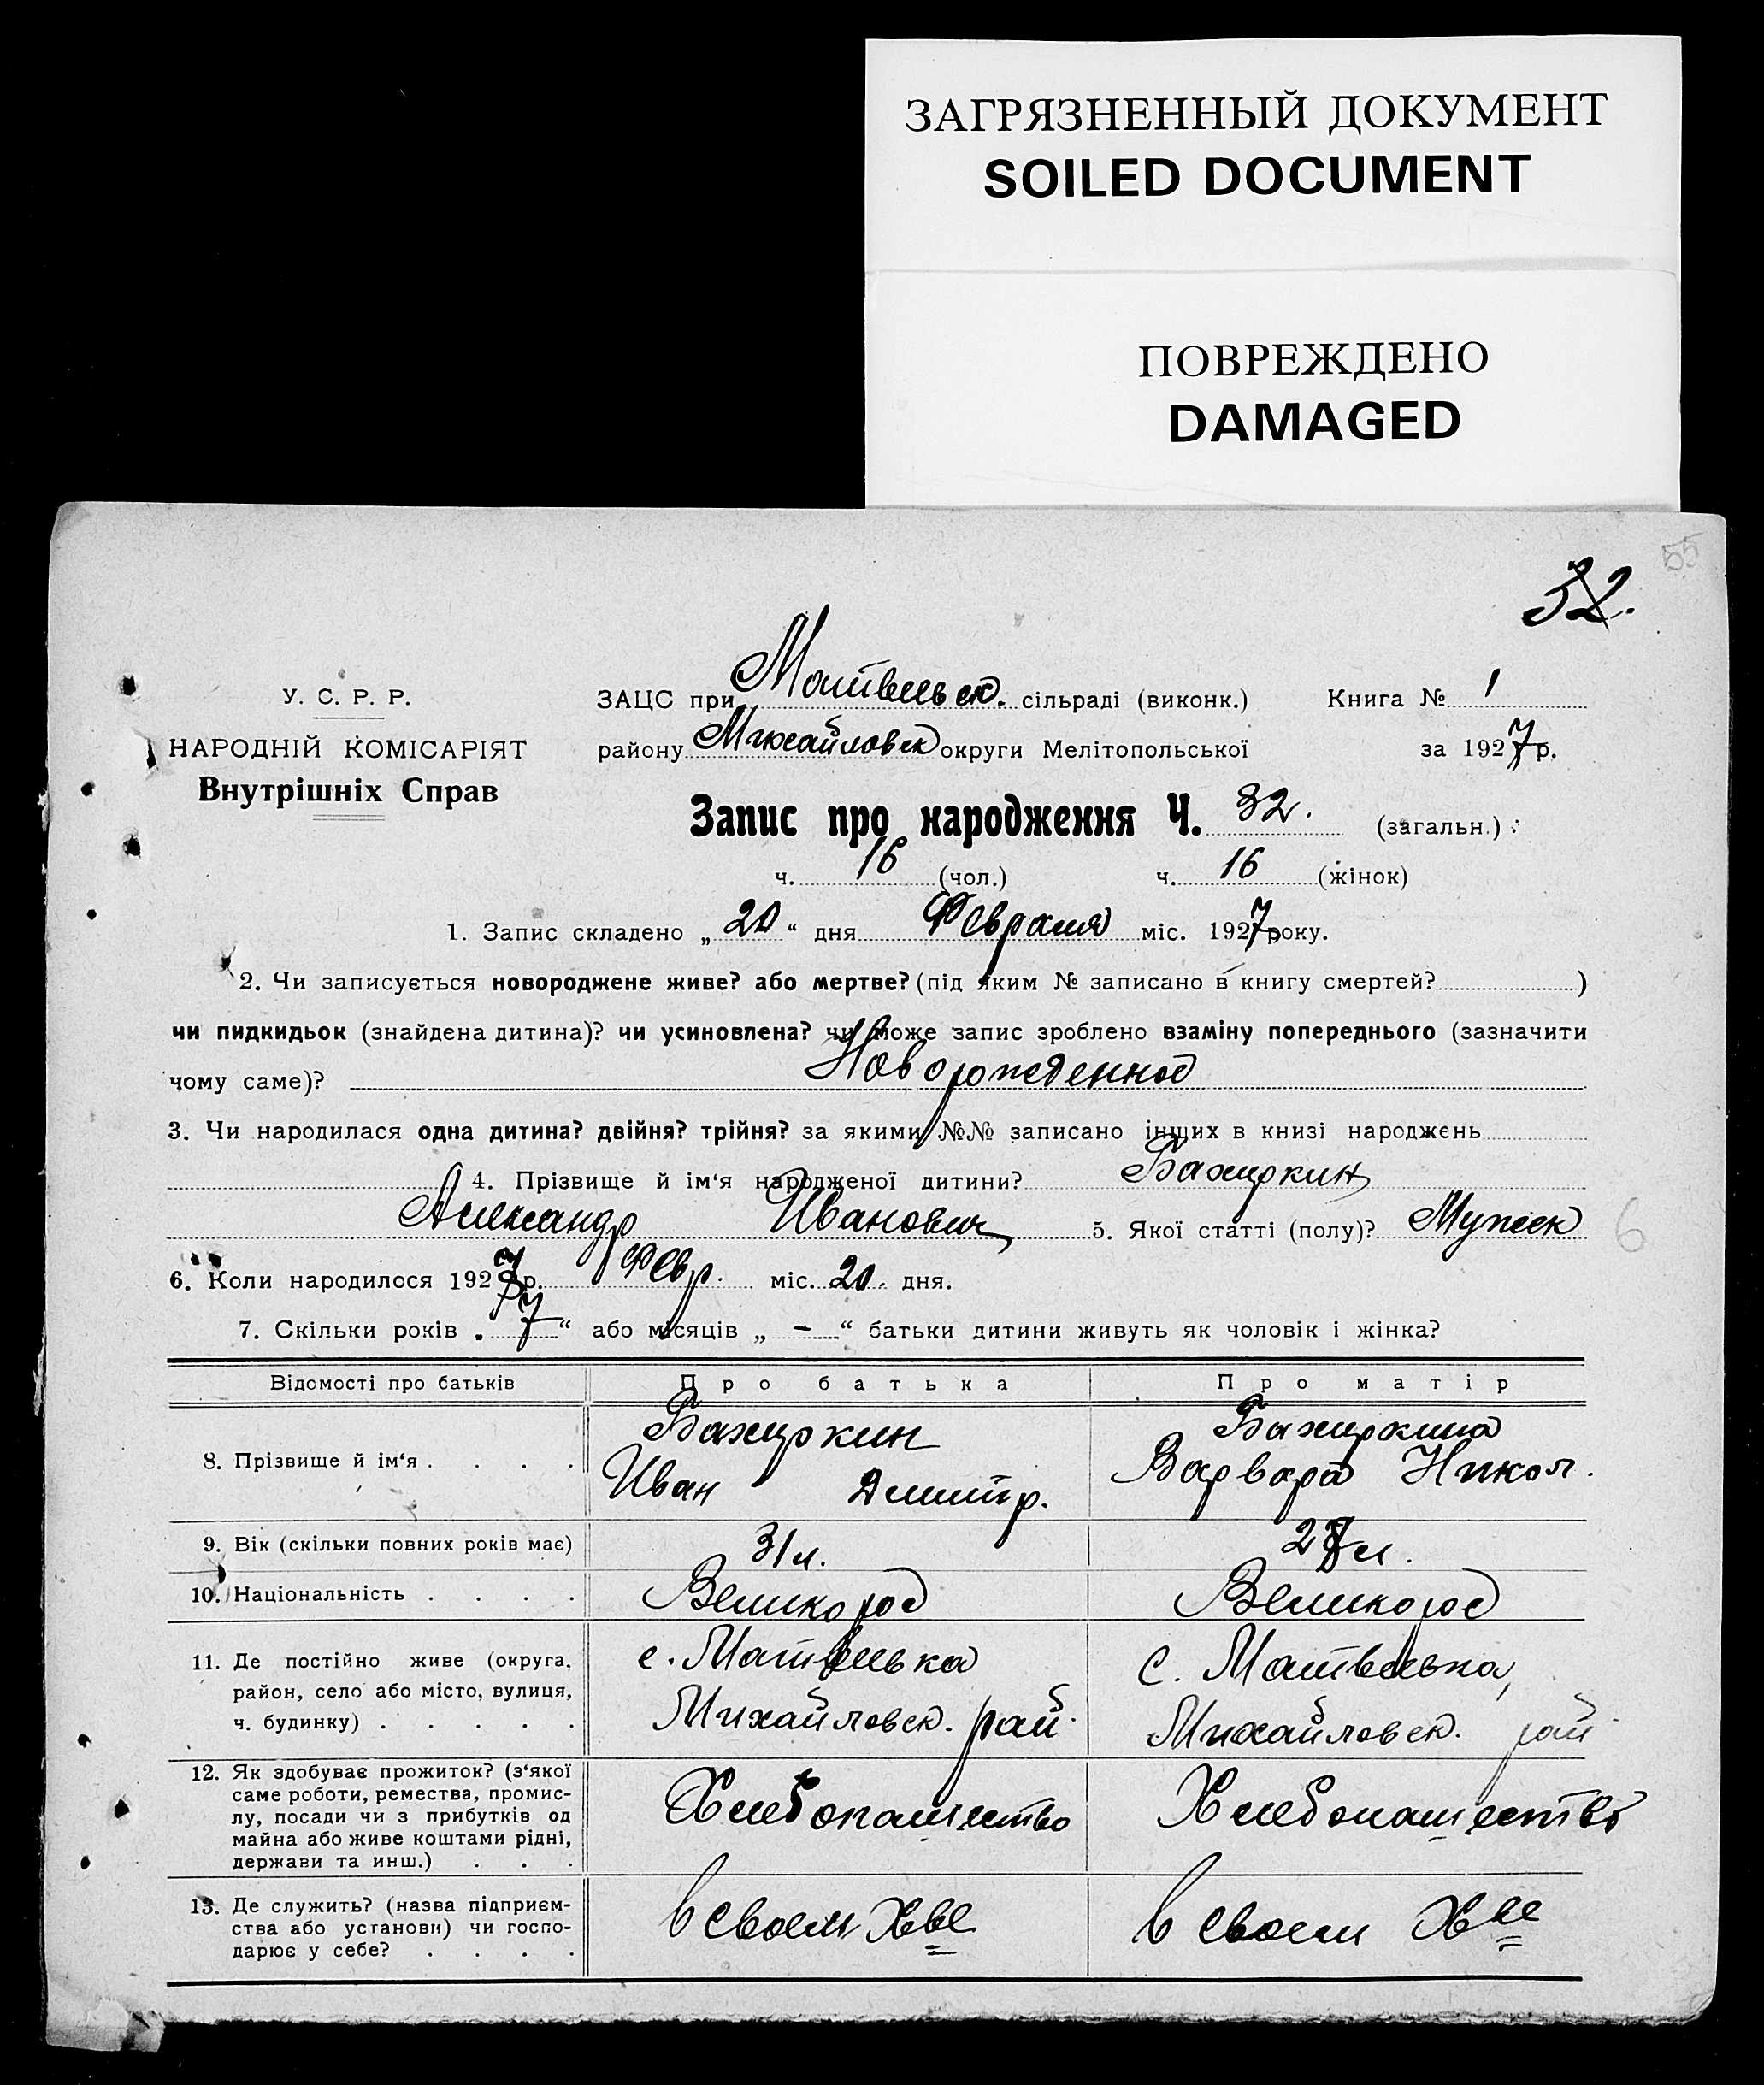 ЗАГРЯЗНЕННЫЙ ДОКУМЕНТ
SOILED DOCUMENT
ПОВРЕЖДЕНО
DAMAGED
55
32.
У. С. Р. Р.
НАРОДНІЙ КОМІСАРІЯТ
Внутрішніх Справ
ЗАЦС при Матвеевск. сільраді (виконк.) Книга № 1
району Михайловск округи Мелітопольської за 1927 р.
Запис про народження Ч. 32. (загальн.)
ч. 16 (чол.) ч. 16 (жінок)
1. Запис складено „20“ дня Февраля міс. 1927 року.
2. Чи записується новороджене живе? або мертве? (під яким № записано в книгу смертей? )
чи пидкидьок (знайдена дитина)? чи усиновлена? чи може запис зроблено взаміну попереднього (зазначити
чому саме)? Новорожденной
3. Чи народилася одна дитина? двійня? трійня? за якими №№ записано інших в книзі народжень
4. Прізвище й ім‘я народженої дитини? Бахиркин
Александр Иванович 5. Якої статті (полу)? Мужск
6
6. Коли народилося 1927 р. Февр. міс. 20. дня.
7. Скільки років „7“ або місяців „ – “ батьки дитини живуть як чоловік і жінка?
Відомості про батьків Про батька Про матір
8. Прізвище й ім‘я . . . . Бахиркин Бахиркина
Иван Дмитр. Варвара Никол.
9. Вік (скільки повних років має) 31 л. 27 л.
10. Національність . . . . Великорос Великорос
11. Де постійно живе (округа, с. Матвеевка с. Матвеевка,
район, село або місто, вулиця,
ч. будинку) . . . . . Михайловск. рай. Михайловск. рай
12. Як здобуває прожиток? (з‘якої
саме роботи, ремества, промис-
лу, посади чи з прибутків од Хлебопашество Хлебопашество
майна або живе коштами рідні,
держави та инш.) . . .
13. Де служить? (назва підприєм-
ства або установи) чи госпо- в своем Хве в своем Хве
дарює у себе? . . . .